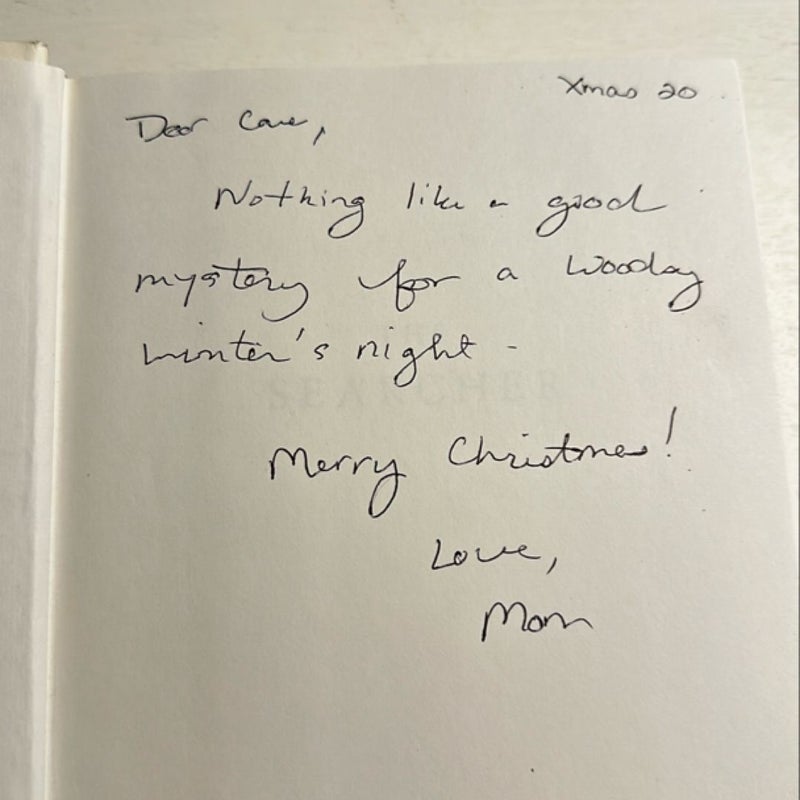 Xmas 20
Dear
Nothing like a good
mystery for a
winter's night -
SEARCHER
Merry Christmas!
Love,
Mom